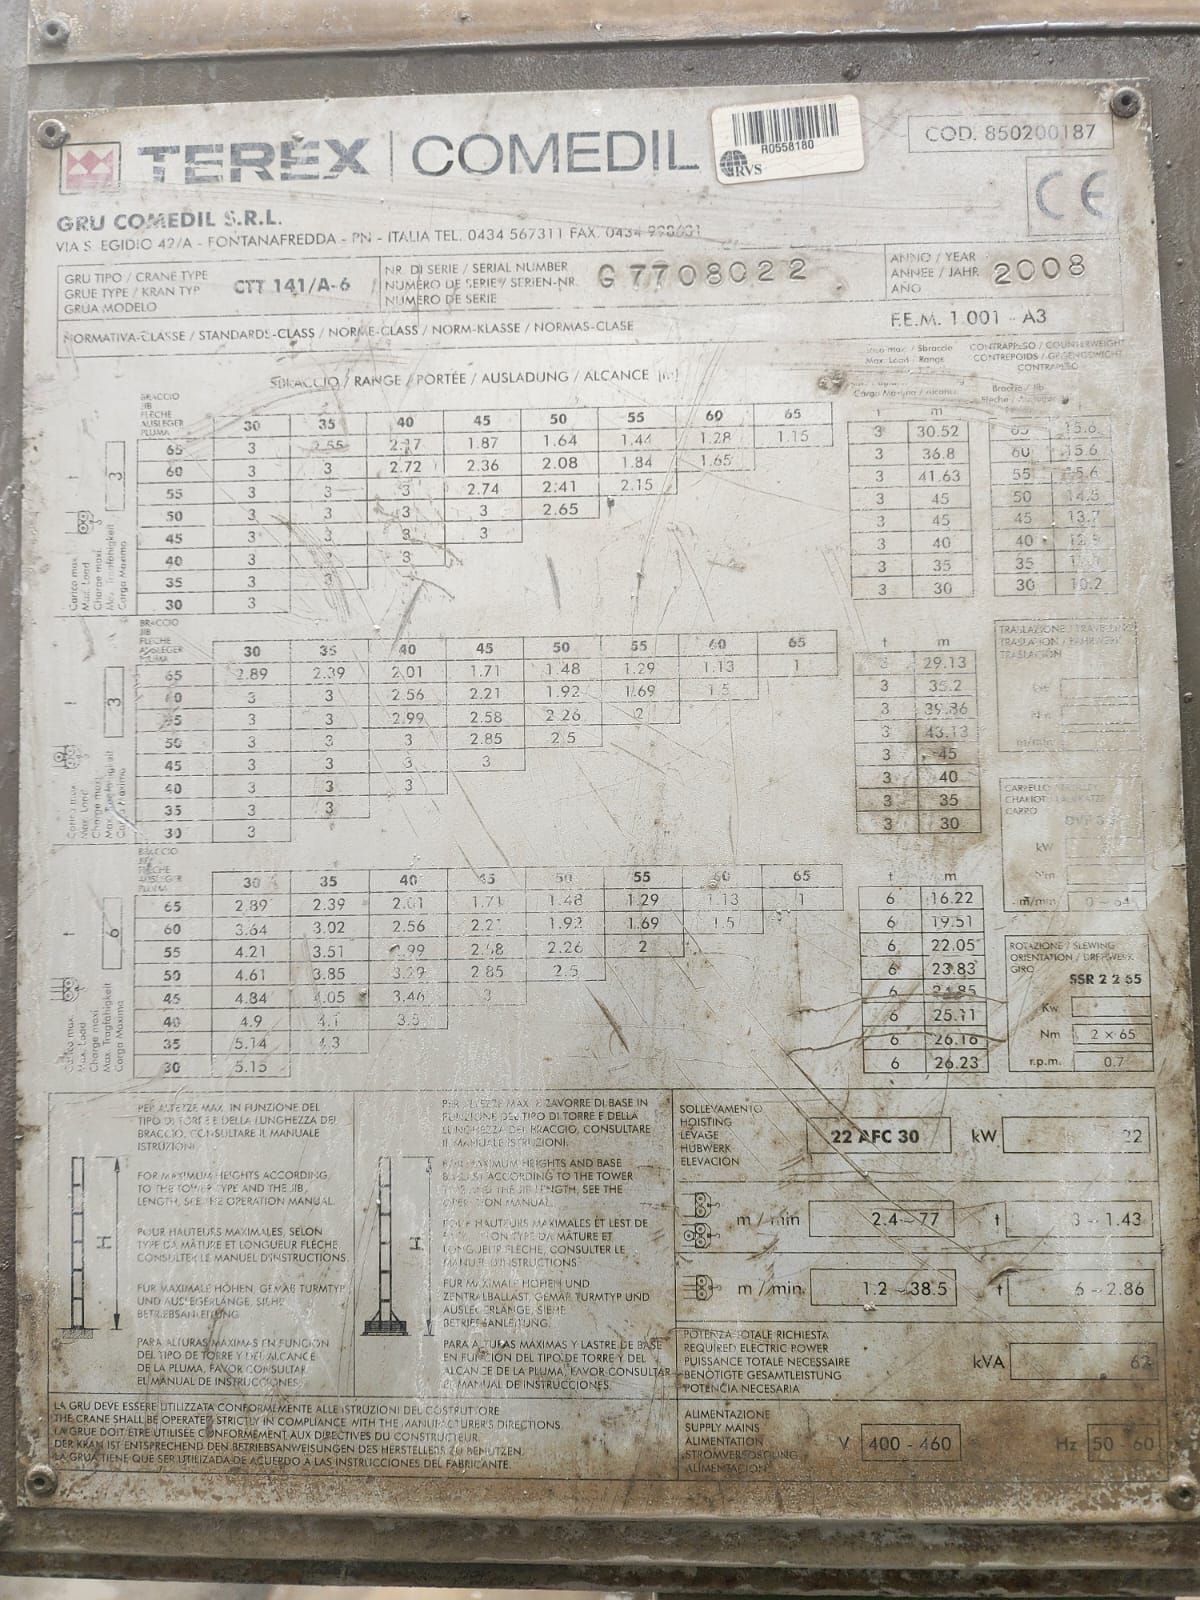 TEREX | COMEDIL
R0558180
RVS
COD. 850200187
CE
GRU COMEDIL S.R.L.
VIA S. EGIDIO 42/A - FONTANAFREDDA - PN - ITALIA TEL. 0434 567311 FAX. 0434
GRU TIPO / CRANE TYPE
GRUE TYPE / KRAN TYP
GRUA MODELO
CTT 141/A-6
NR. DI SERIE / SERIAL NUMBER
NUMÉRO DE SERIE / SERIEN-NR.
NUMERO DE SERIE
G7708022
ANNO / YEAR
ANNÉE / JAHR
AÑO
2008
NORMATIVA-CLASSE / STANDARDS-CLASS / NORME-CLASS / NORM-KLASSE / NORMAS-CLASE
F.E.M. 1 001 - A3
SBRACCIO / RANGE / PORTÉE / AUSLADUNG / ALCANCE [m]
Max. Load / Range
CONTRAPPESO / COUNTERWEIGHT
CONTREPOIDS / GEGENGEWICHT
CONTRAPESO
BRACCIO
JIB
FLECHE
AUSLEGER
PLUMA
30 35 40 45 50 55 60 65 t m
65 3 2.55 2.17 1.87 1.64 1.44 1.28 1.15 3 30.52 65 15.6
60 3 3 2.72 2.36 2.08 1.84 1.65 3 36.8 60 15.6
55 3 3 3 2.74 2.41 2.15 3 41.63 55 15.6
50 3 3 3 3 2.65 3 45 50
45 3 3 3 3 3 45 45 13.7
40 3 3 3 3 40 40
35 3 3 3 35 35
30 3 3 30 30 10.2
3
Carico max.
Max. Load
Charge maxi.
Max. Tragfähigkeit
Carga Maxima
BRACCIO
JIB
FLECHE
AUSLEGER
PLUMA
30 35 40 45 50 55 60 65 t m
65 2.89 2.39 2.01 1.71 1.48 1.29 1.13 1 3 29.13
60 3 3 2.56 2.21 1.92 1.69 1.5 3 35.2
55 3 3 2.99 2.58 2.26 2 3 39.86
50 3 3 3 2.85 2.5 3 43.13
45 3 3 3 3 3 45
40 3 3 3 3 40
35 3 3 3 35
30 3 3 30
3
Carico max.
Max. Load
Charge maxi.
Max. Tragfähigkeit
Carga Maxima
TRASLAZIONE / TRAVELLING
TRASLATION / FAHRWERK
TRASLACION
m/min
CARRELLO
CHARIOT
CARRO
kW
Nm
m/min 0 - 64
BRACCIO
FLECHE
AUSLEGER
PLUMA
30 35 40 45 50 55 60 65 t m
65 2.89 2.39 2.01 1.71 1.48 1.29 1.13 1 6 16.22
60 3.64 3.02 2.56 2.21 1.92 1.69 1.5 6 19.51
55 4.21 3.51 2.99 2.58 2.26 2 6 22.05
50 4.61 3.85 3.29 2.85 2.5 6 23.83
45 4.84 4.05 3.46 3 6 24.85
40 4.9 4.1 3.5 6 25.11
35 5.14 4.3 6 26.16
30 5.15 6 26.23
6
Carico max.
Max. Load
Charge maxi.
Max. Tragfähigkeit
Carga Maxima
ROTAZIONE / SLEWING
ORIENTATION / DREHWERK
GIRO
SSR 2 2 65
Kw
Nm 2 x 65
r.p.m. 0.7
PER ALTEZZE MAX. IN FUNZIONE DEL
TIPO DI TORRE E DELLA LUNGHEZZA DEL
BRACCIO, CONSULTARE IL MANUALE
ISTRUZIONI
FOR MAXIMUM HEIGHTS ACCORDING
TO THE TOWER TYPE AND THE JIB
LENGTH, SEE THE OPERATION MANUAL.
POUR HAUTEURS MAXIMALES, SELON
TYPE DA MÂTURE ET LONGUEUR FLÈCHE,
CONSULTER LE MANUEL D'INSTRUCTIONS.
FÜR MAXIMALE HÖHEN, GEMÄß TURMTYP
UND AUSLEGERLÄNGE, SIEHE
BETRIEBSANLEITUNG
PARA ALTURAS MAXIMAS EN FUNCION
DEL TIPO DE TORRE Y DEL ALCANCE
DE LA PLUMA, FAVOR CONSULTAR
EL MANUAL DE INSTRUCCIONES.
H
PER ALTEZZE MAX. E ZAVORRE DI BASE IN
FUNZIONE DEL TIPO DI TORRE E DELLA
LUNGHEZZA DEL BRACCIO, CONSULTARE
IL MANUALE ISTRUZIONI.
FOR MAXIMUM HEIGHTS AND BASE
BALLAST ACCORDING TO THE TOWER
TYPE AND THE JIB LENGTH, SEE THE
OPERATION MANUAL.
POUR HAUTEURS MAXIMALES ET LEST DE
BASE, EN FONCTION DU TYPE DA MÂTURE ET
LONGUEUR FLÈCHE, CONSULTER LE
MANUEL D'INSTRUCTIONS
FÜR MAXIMALE HÖHEN UND
ZENTRALBALLAST, GEMÄß TURMTYP UND
AUSLEGERLÄNGE, SIEHE
BETRIEBSANLEITUNG.
PARA ALTURAS MÁXIMAS Y LASTRE DE BASE
EN FUNCIÓN DEL TIPO DE TORRE Y DEL
ALCANCE DE LA PLUMA, FAVOR CONSULTAR
EL MANUAL DE INSTRUCCIONES.
H
SOLLEVAMENTO
HOISTING
LEVAGE
HUBWERK
ELEVACION
22 AFC 30 kW 22
m / min 2.4 - 77 t 3 - 1.43
m / min 1.2 - 38.5 t 6 - 2.86
POTENZA TOTALE RICHIESTA
REQUIRED ELECTRIC POWER
PUISSANCE TOTALE NECESSAIRE
BENÖTIGTE GESAMTLEISTUNG
POTENCIA NECESARIA
kVA 62
ALIMENTAZIONE
SUPPLY MAINS
ALIMENTATION
STROMVERSORGUNG
ALIMENTACION
V 400 - 460 Hz 50 60
LA GRU DEVE ESSERE UTILIZZATA CONFORMEMENTE ALLE ISTRUZIONI DEL COSTRUTTORE
THE CRANE SHALL BE OPERATED STRICTLY IN COMPLIANCE WITH THE MANUFACTURERS DIRECTIONS.
LA GRUE DOIT ÊTRE UTILISÉE CONFORMEMENT AUX DIRECTIVES DU CONSTRUCTEUR.
DER KRAN IST ENTSPRECHEND DEN BETRIEBSANWEISUNGEN DES HERSTELLERS ZU BENUTZEN.
LA GRUA TIENE QUE SER UTILIZADA DE ACUERDO A LAS INSTRUCCIONES DEL FABRICANTE.